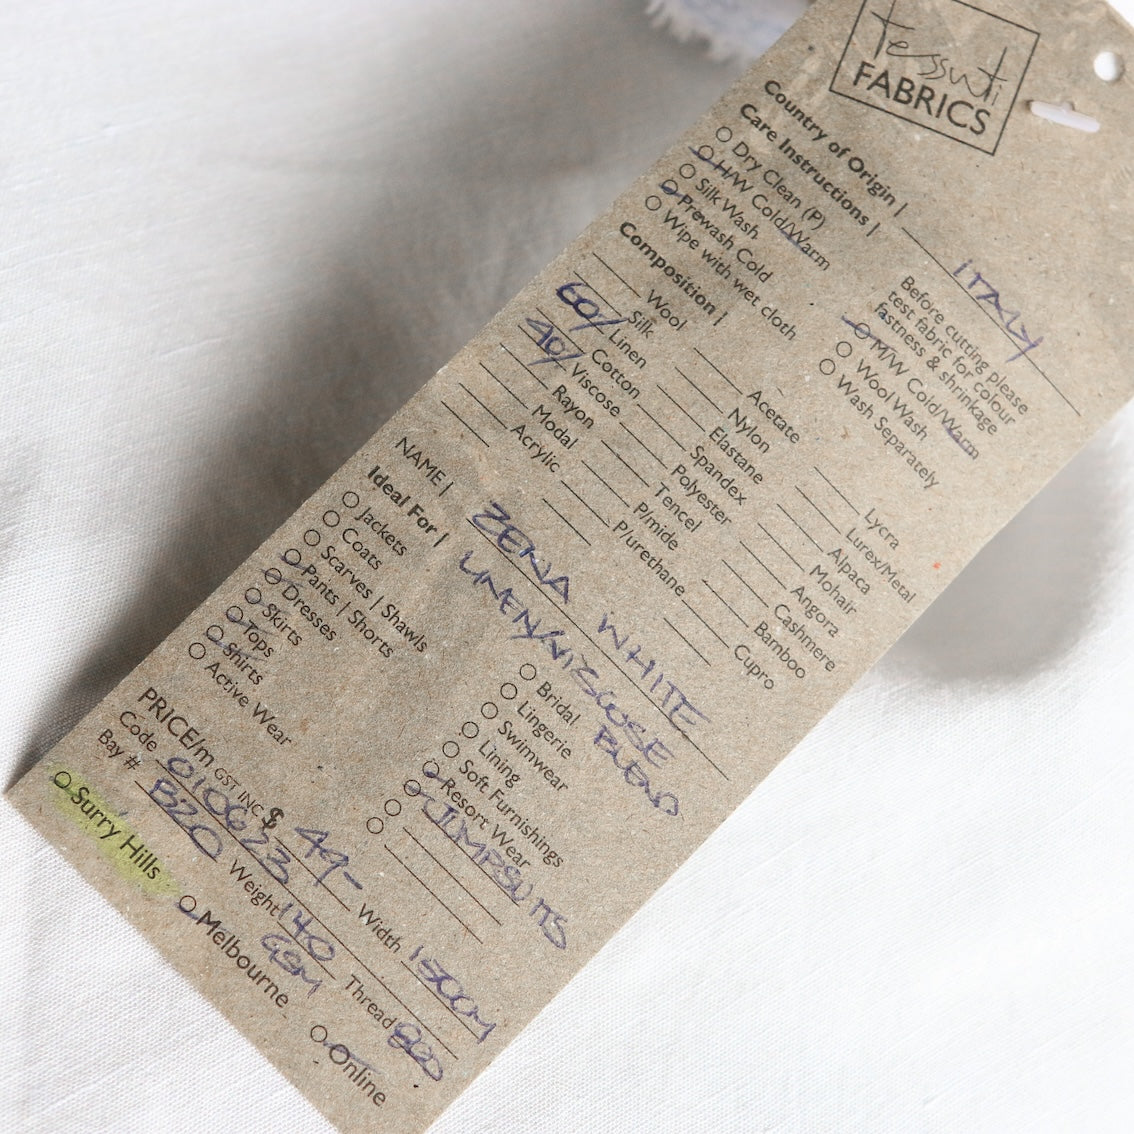 Tessuti
FABRICS
Country of Origin | ITALY
Care Instructions |
Dry Clean (P)
H/W Cold/Warm
Silk Wash
Prewash Cold
Wipe with wet cloth
Before cutting please
test fabric for colour
fastness & shrinkage
M/W Cold/Warm
Wool Wash
Wash Separately
Composition |
Wool
Silk
60/ Linen
Cotton
40/ Viscose
Rayon
Modal
Acrylic
Acetate
Nylon
Elastane
Spandex
Polyester
Tencel
P/mide
P/urethane
Lycra
Lurex/Metal
Alpaca
Mohair
Angora
Cashmere
Bamboo
Cupro
NAME | ZENA WHITE
LINEN/VISCOSE
BLEND
Ideal For |
Jackets
Coats
Scarves | Shawls
Pants | Shorts
Dresses
Skirts
Tops
Shirts
Active Wear
Bridal
Lingerie
Swimwear
Lining
Soft Furnishings
Resort Wear
JUMPSUITS
PRICE/m GST INC $ 49- Width 150CM
Code 010623 Weight 140 GSM Thread 800
Bay # B20
Surry Hills Melbourne Online